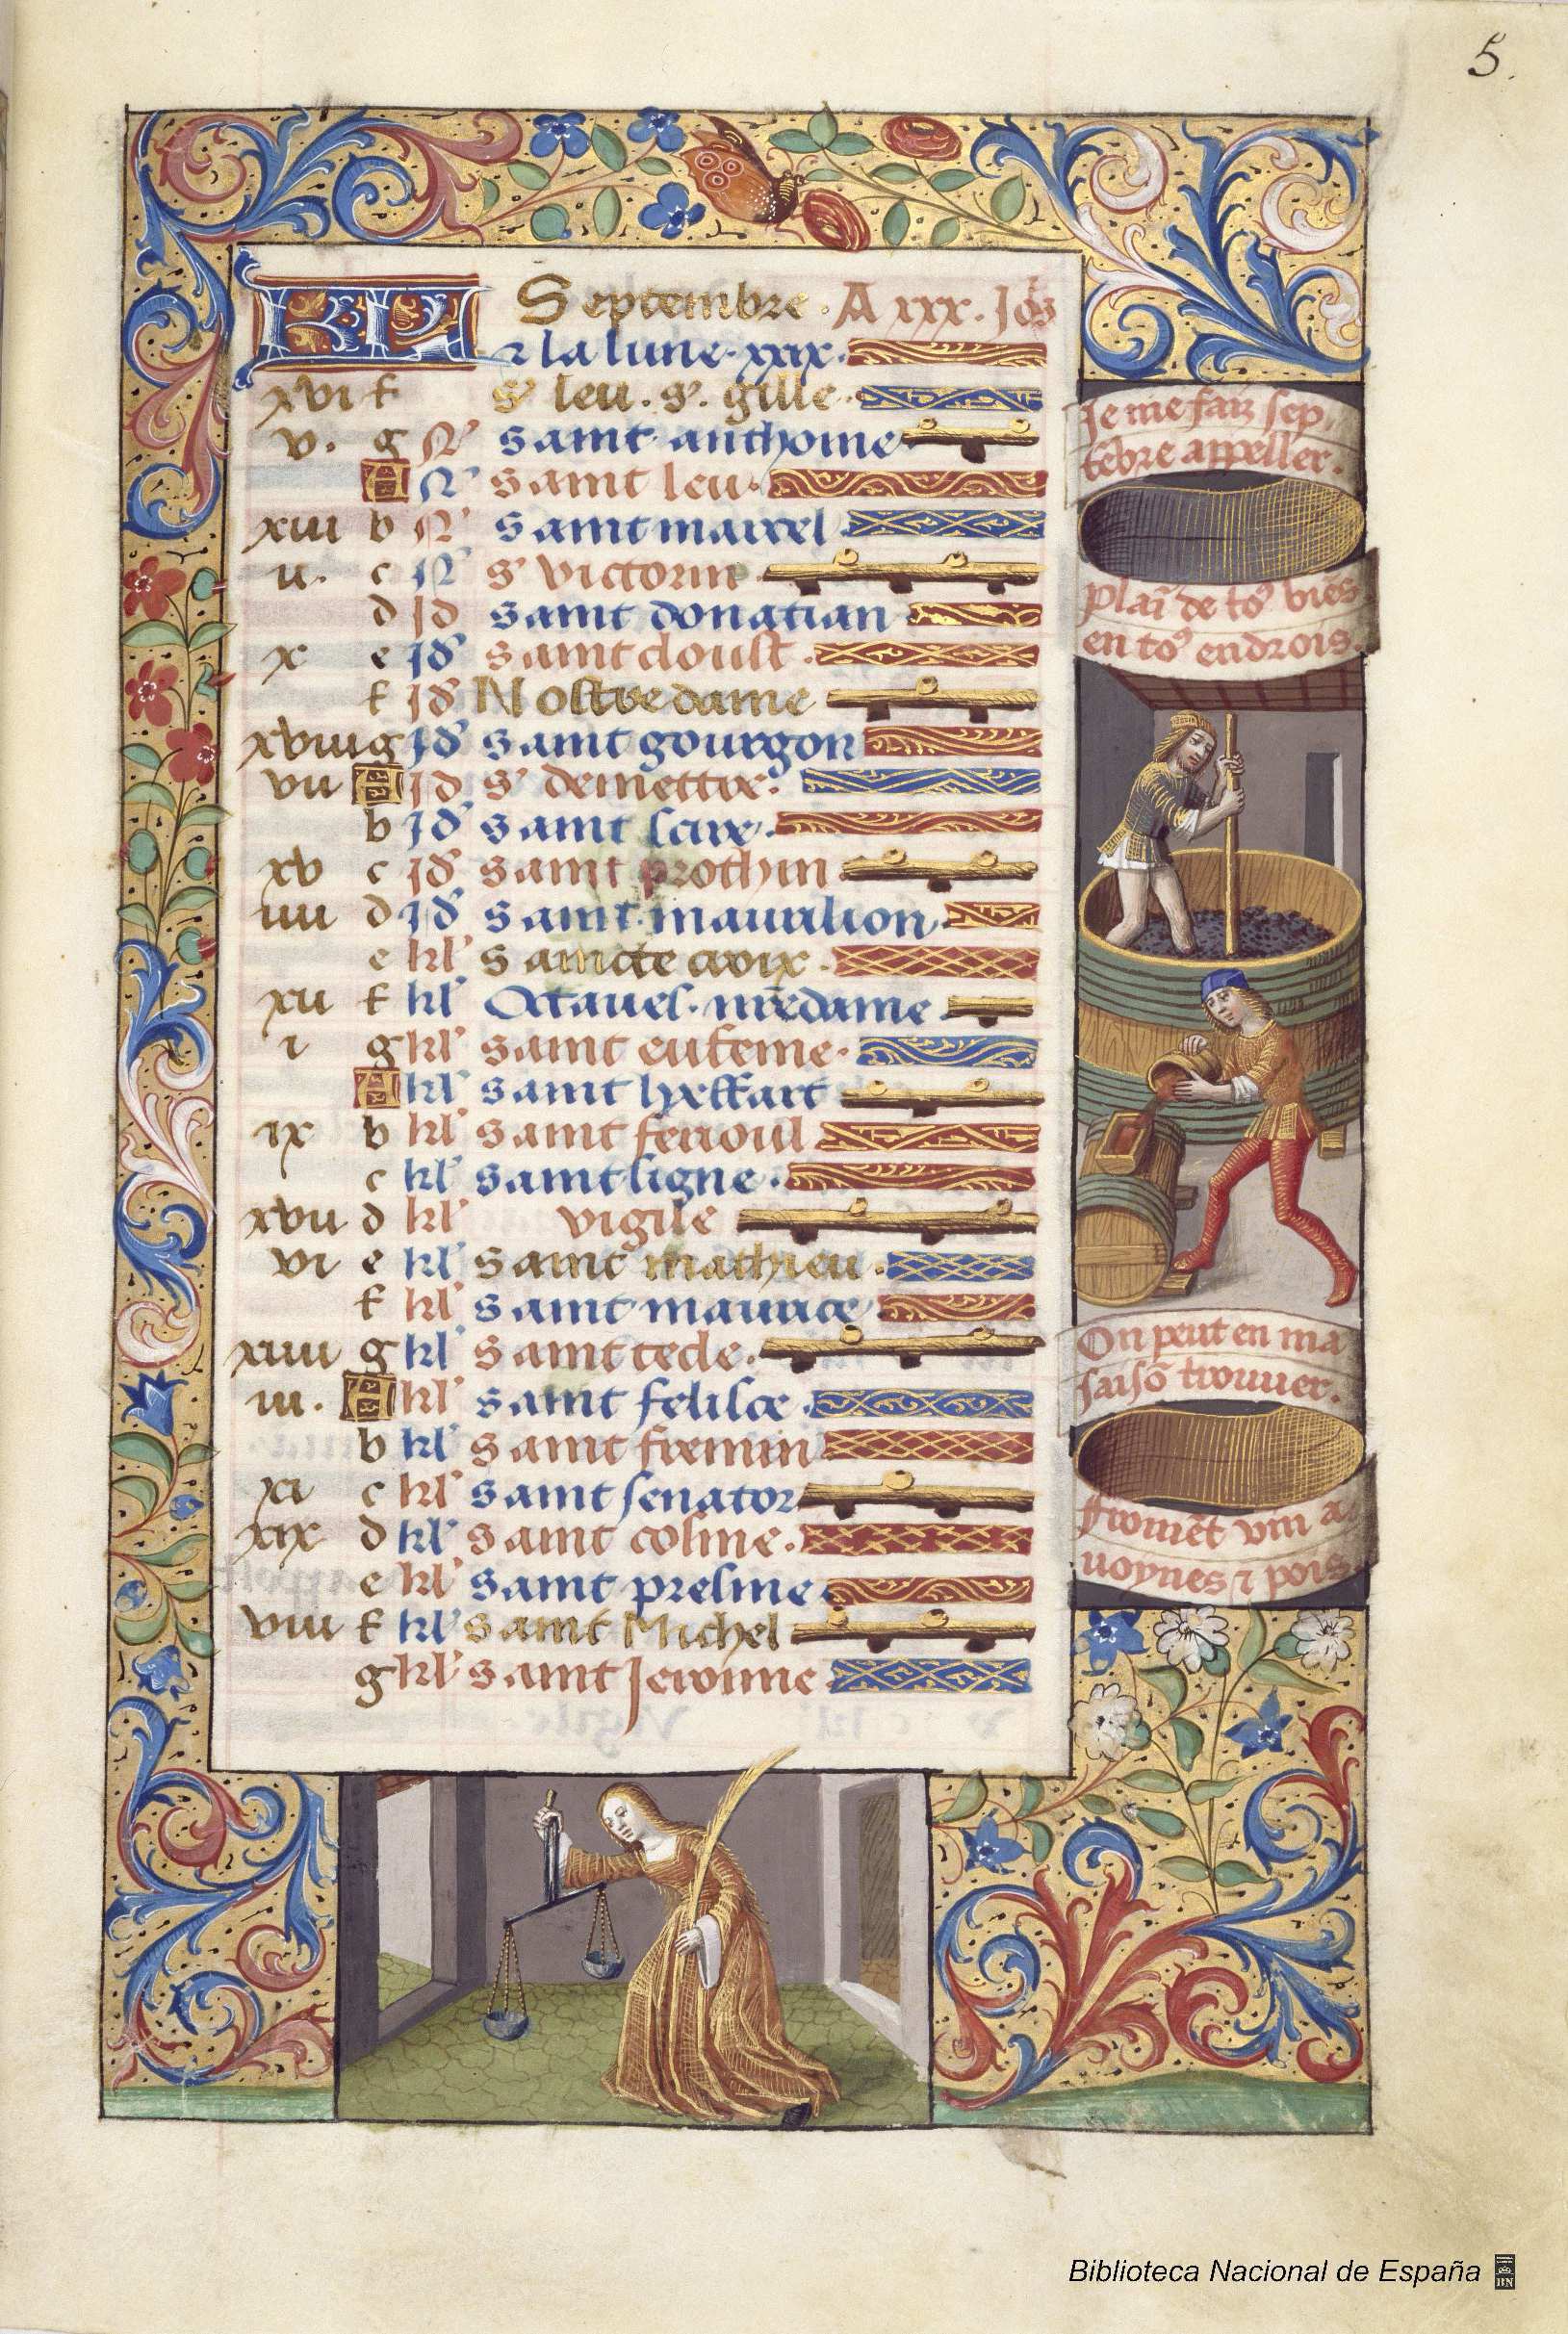 5.
KL Septembre. A xxx. Jo's
⁊ la lune. xxix.
xvi f s' leu. s'. gille
v. g N' saint anthoine
A N' saint leu.
xiii b N' saint marcel
ii. c N' s' victorin
d Id saint donatian
x e Id' saint cloust.
f Id' Nostredame
xviii g Id' saint gourgon
vii A Id s' demettre.
b Id' saint scire.
xv c Id' saint prothin
iiii d Id' saint maurilion
e kl' saincte croix.
xii f kl' Octaves. nr̄edame
i g kl' saint eufeme.
A kl' saint lyeffart
ix b kl' saint ferroul
c kl' saint signe.
xvii d kl' vigile
vi e kl' saint mathieu.
f kl' saint maurice
xiiii g kl' saint tecle.
iii. A kl' saint felisce.
b kl' saint fremin
xi c kl' saint senator
xix d kl' saint cosme.
e kl' saint presme
viii f kl' saint Michel
g kl' saint Jeronime
Je me faiz sep
tēbre appeller.
plaī de to' biēs
en to' endrois.
On peut en ma
saisō trouuer.
fromēt vin a
uoynes ⁊ pois
Biblioteca Nacional de España
BN